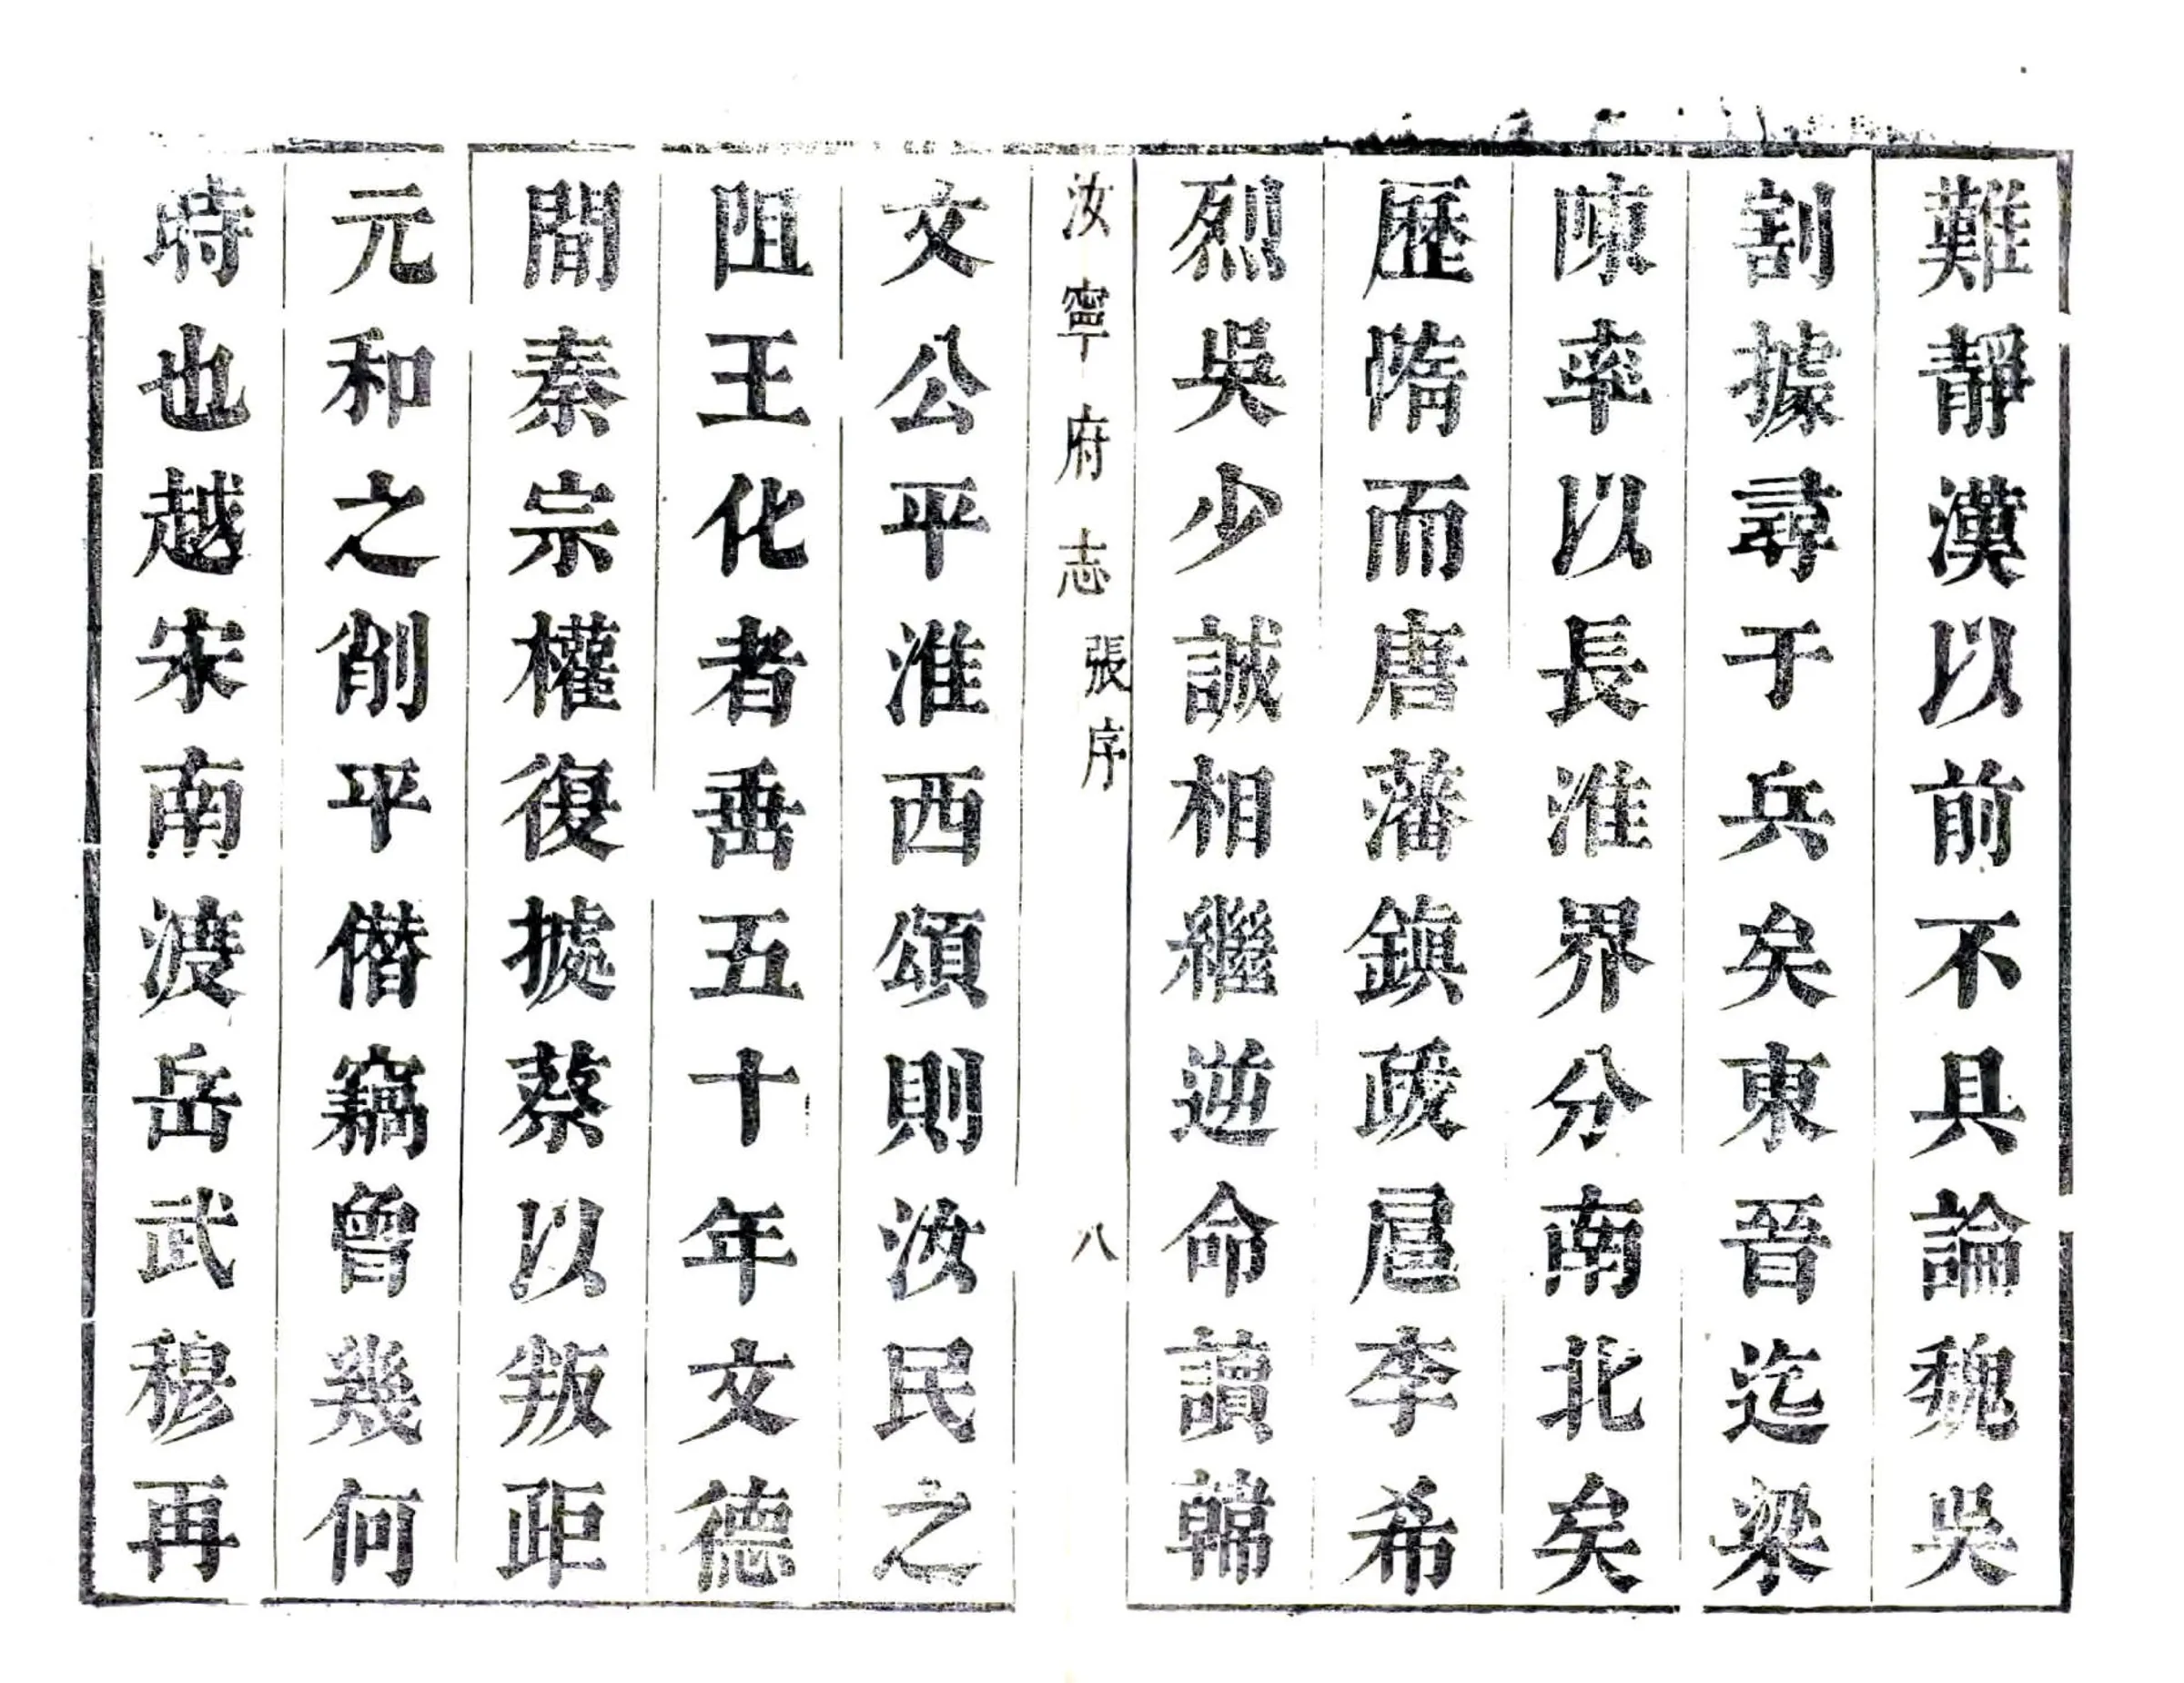 難靜漢以前不具論魏吳
割據尋于兵矣東晉迄梁
陳率以長淮界分南北矣
歷隋而唐藩鎮跋扈李希
烈吳少誠相繼逆命讀韓
汝寧府志 張序 八
文公平淮西頌則汝民之
阻王化者垂五十年文德
間秦宗權復據蔡以叛距
元和之削平僭竊曾幾何
時也越宋南渡岳武穆再